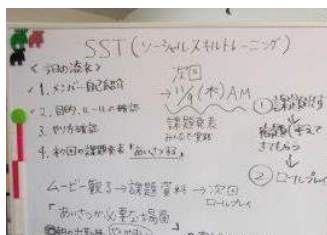 SST(ソーシャルスキルトレーニング)
<今日の流れ>
✓1. メンバー自己紹介
✓2. 目的、ルールの確認
3. やり方確認
4. 初回の課題発表「あいさつする」
次回
→11/9(木)AM
課題発表
みんなで実践
①課題出す
↓
②ロールプレイ
ムービー観る→課題資料→次回
ロールプレイ
「あいさつが必要な場面」